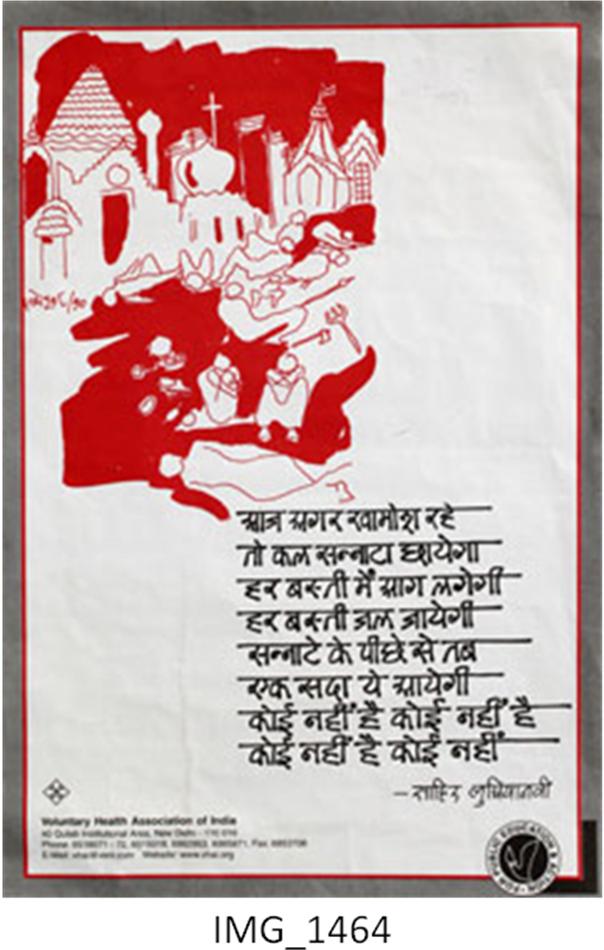 आज अगर खामोश रहे
तो कल सन्नाटा छायेगा
हर बस्ती में आग लगेगी
हर बस्ती जल जायेगी
सन्नाटे के पीछे से तब
एक सदा ये आयेगी
कोई नहीं है कोई नहीं है
कोई नहीं है कोई नहीं
— साहिर लुधियानवी
Voluntary Health Association of India
Institutional Area, New Delhi - 110 016
Phone: Fax:
E-Mail: Website: www.vhai.org
FOR PUBLIC EDUCATION & ACTION
IMG_1464